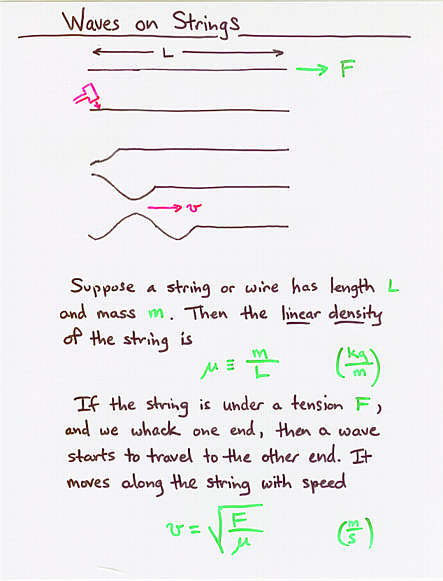 Waves on Strings
L
F
v
Suppose a string or wire has length L
and mass m. Then the linear density
of the string is
μ ≡ m/L (kg/m)
If the string is under a tension F,
and we whack one end, then a wave
starts to travel to the other end. It
moves along the string with speed
v = √(F/μ) (m/s)